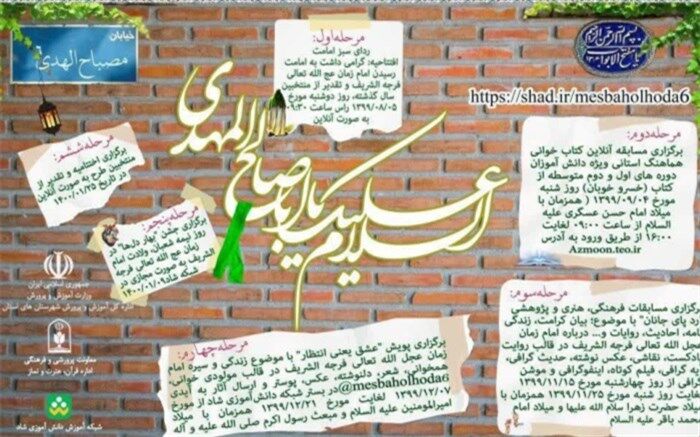 خیابان
مصباح الهدی ۶
https://shad.ir/mesbaholhoda6
السلام علیک یا اباصالح المهدی
مرحله اول:
ردای سبز امامت
افتتاحیه: گرامی داشت به امامت
رسیدن امام زمان عج الله تعالی
فرجه الشریف و تقدیر از منتخبین
سال گذشته، روز دوشنبه مورخ
۱۳۹۹/۰۸/۰۵ راس ساعت ۰۹:۳۰
به صورت آنلاین
مرحله دوم:
برگزاری مسابقه آنلاین کتاب خوانی
هماهنگ استانی ویژه دانش آموزان
دوره های اول و دوم متوسطه از
کتاب (خسرو خوبان) روز شنبه
مورخ ۱۳۹۹/۰۹/۰۴ (همزمان با
میلاد امام حسن عسکری علیه
السلام از ساعت ۰۹:۰۰ لغایت
۱۶:۰۰ از طریق ورود به آدرس
Azmoon.teo.ir
مرحله سوم:
گزاری مسابقات فرهنگی، هنری و پژوهشی
رد پای جانان" با موضوع: بیان کرامت، زندگی
، احادیث، روایات و ... درباره امام زمان
جل الله تعالی فرجه الشریف در قالب روایت
نقاشی، عکس نوشته، حدیث گرافی،
گرافی، فیلم کوتاه، اینفوگرافی و موشن
افی از روز چهارشنبه مورخ ۱۳۹۹/۱۱/۱۵
لغایت روز شنبه مورخ ۱۳۹۹/۱۱/۲۵ همزمان با
لاد حضرت زهرا سلام الله علیها و میلاد امام
محمد باقر علیه السلام
مرحله چهارم:
برگزاری پویش "عشق یعنی انتظار" با موضوع زندگی و سیره امام
زمان عجل الله تعالی فرجه الشریف در قالب مولودی خوانی،
همخوانی، شعر، دلنوشته، عکس، پوستر و ارسال آثار به آیدی
@mesbaholhoda6 در بستر شبکه دانش آموزی شاد از مورخ
۱۳۹۹/۱۲/۰۷ لغایت مورخ ۱۳۹۹/۱۲/۲۱ همزمان با میلاد
امیرالمومنین علیه السلام و مبعث رسول اکرم صلی الله علیه و آله
مرحله پنجم:
برگزاری جشن "بهار دلها" در
روز نیمه شعبان ولادت امام
زمان عج الله تعالی فرجه
الشریف به صورت مجازی در
شبکه شاد ۱۴۰۰/۰۱/۰۹
مرحله ششم:
برگزاری اختتامیه و تقدیر از
منتخبین طرح به صورت آنلاین
در تاریخ ۱۴۰۰/۰۱/۲۵
جمهوری اسلامی ایران
وزارت آموزش و پرورش
اداره کل آموزش و پرورش شهرستان های استان
معاونت پرورشی و فرهنگی
اداره قرآن، عترت و نماز
شبکه آموزش دانش آموزی شاد